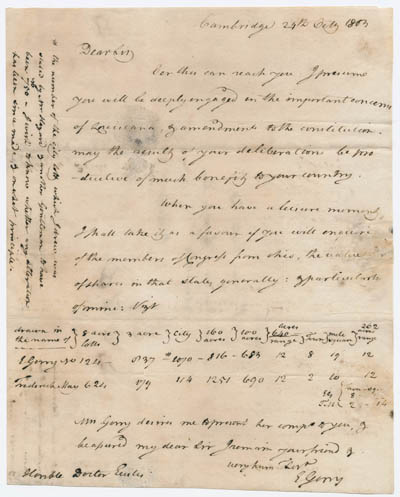 Cambridge 24th Octr 1803
Dear Sir
Ere this can reach you I presume
you will be deeply engaged in the important concerns
of Louisiana & amendments to the constitution.
may the result of your deliberations be pro-
-ductive of much benefit to your country.
When you have a leisure moment,
I shall take it as a favour if you will enquire
of the members of Congress from ohio, the value
of shares in that state generally: & particularly
of mine: Vizt
drawn in the name of
8 acre lotts
3 acre
City
160 acres
100 acres
acres 640 range
mile square
262 acres range
E Gerry No 124 837 1010 816 683 12 8 19 12
Frederick 624 114 1251 690 12 2 10 12
Mrs Gerry desires me to present her compts to you, &
be assured my dear Sir I remain your friend &
very hum Sert
E Gerry
Honble Doctor Eustis
* the number of the city lott which I drew was
stated by & another Gentleman to have
been 790 - I wish to know whether any alteration
has been since made, & on what principle.